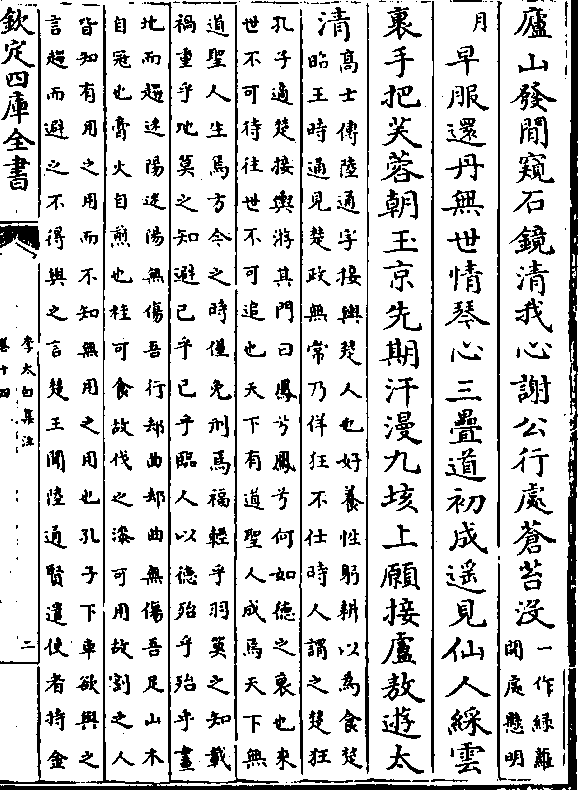 廬山發閒窺石鏡清我心謝公行處蒼苔沒一作緑蘿開處懸明
月早服還丹無世情琴心三疊道初成遥見仙人綵雲
裏手把芙蓉朝玉京先期汗漫九垓上願接盧敖遊太
清高士傳陸通字接輿楚人也好養性躬耕以為食楚
昭王時通見楚政無常乃佯狂不仕時人謂之楚狂
孔子適楚接輿游其門曰鳳兮鳳兮何如德之衰也來
世不可待往世不可追也天下有道聖人成焉天下無
道聖人生焉方今之時僅免刑焉福輕乎羽莫之知載
禍重乎地莫之知避已乎已乎臨人以德殆乎殆乎畫
地而趨迷陽迷陽無傷吾行郤曲郤曲無傷吾足山木
自宼也膏火自煎也桂可食故伐之漆可用故割之人
皆知有用之用而不知無用之用也孔子下車欲與之
言趨而避之不得與之言楚王聞陸通賢遣使者持金
欽定四庫全書
李太白集注
卷十四
二